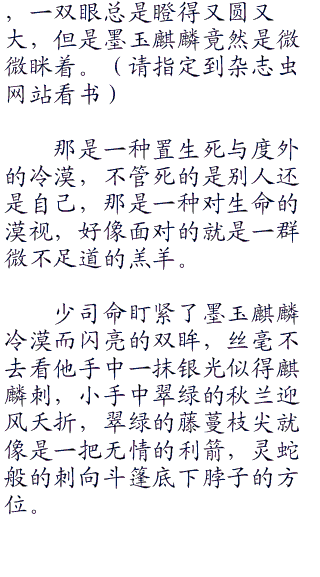 ，一双眼总是瞪得又圆又
大，但是墨玉麒麟竟然是微
微眯着。（请指定到杂志虫
网站看书）
那是一种置生死与度外
的冷漠，不管死的是别人还
是自己，那是一种对生命的
漠视，好像面对的就是一群
微不足道的羔羊。
少司命盯紧了墨玉麒麟
冷漠而闪亮的双眸，丝毫不
去看他手中一抹银光似得麒
麟刺，小手中翠绿的秋兰迎
风夭折，翠绿的藤蔓枝尖就
像是一把无情的利箭，灵蛇
般的刺向斗篷底下脖子的方
位。